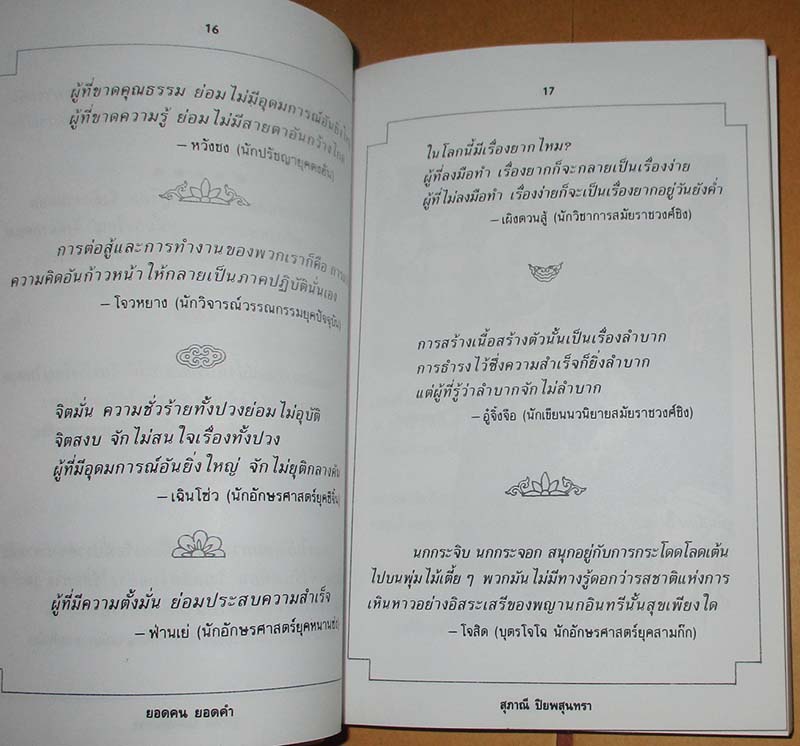 16
ผู้ที่ขาดคุณธรรม ย่อมไม่มีอุดมการณ์อันยิ่งใหญ่
ผู้ที่ขาดความรู้ ย่อมไม่มีสายตาอันกว้างไกล
— หวังชง (นักปรัชญายุคตงฮั่น)
การต่อสู้และการทำงานของพวกเราก็คือ
ความคิดอันก้าวหน้าให้กลายเป็นภาคปฏิบัตินั่นเอง
— โจวหยาง (นักวิจารณ์วรรณกรรมยุคปัจจุบัน)
จิตมั่น ความชั่วร้ายทั้งปวงย่อมไม่อุบัติ
จิตสงบ จักไม่สนใจเรื่องทั้งปวง
ผู้ที่มีอุดมการณ์อันยิ่งใหญ่ จักไม่ยุติกลางคัน
— เฉินโซ่ว (นักอักษรศาสตร์ยุคซีจิ้น)
ผู้ที่มีความตั้งมั่น ย่อมประสบความสำเร็จ
— ฟ่านเย่ (นักอักษรศาสตร์ยุคหนานซ่ง)
ยอดคน ยอดคำ
17
ในโลกนี้มีเรื่องยากไหม?
ผู้ที่ลงมือทำ เรื่องยากก็จะกลายเป็นเรื่องง่าย
ผู้ที่ไม่ลงมือทำ เรื่องง่ายก็จะเป็นเรื่องยากอยู่วันยังค่ำ
— เผิงตวนสู้ (นักวิชาการสมัยราชวงศ์ชิง)
การสร้างเนื้อสร้างตัวนั้นเป็นเรื่องลำบาก
การธำรงไว้ซึ่งความสำเร็จก็ยิ่งลำบาก
แต่ผู้ที่รู้ว่าลำบากจักไม่ลำบาก
— อู๋จิ้งจือ (นักเขียนนวนิยายสมัยราชวงศ์ชิง)
นกกระจิบ นกกระจอก สนุกอยู่กับการกระโดดโลดเต้น
ไปบนพุ่มไม้เตี้ย ๆ พวกมันไม่มีทางรู้ดอกว่ารสชาติแห่งการ
เหินหาวอย่างอิสระเสรีของพญานกอินทรีนั้นสุขเพียงใด
— โจสิด (บุตรโจโฉ นักอักษรศาสตร์ยุคสามก๊ก)
สุภาณี ปิยพสุนทรา